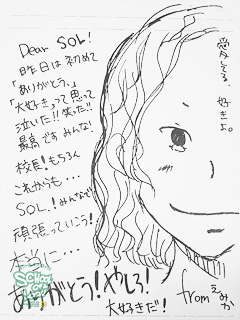 Dear SOL!
昨日は初めて
「ありがとう、」
「大好きって思って
泣いた!!笑った!!
最高です みんな!
校長!もちろん
これからも・・・
SOL!みんなで
頑張っていこう!
本当に・・・
ありがとう!やしろ!
大好きだ!
愛してる。
好きよ。
from えみか